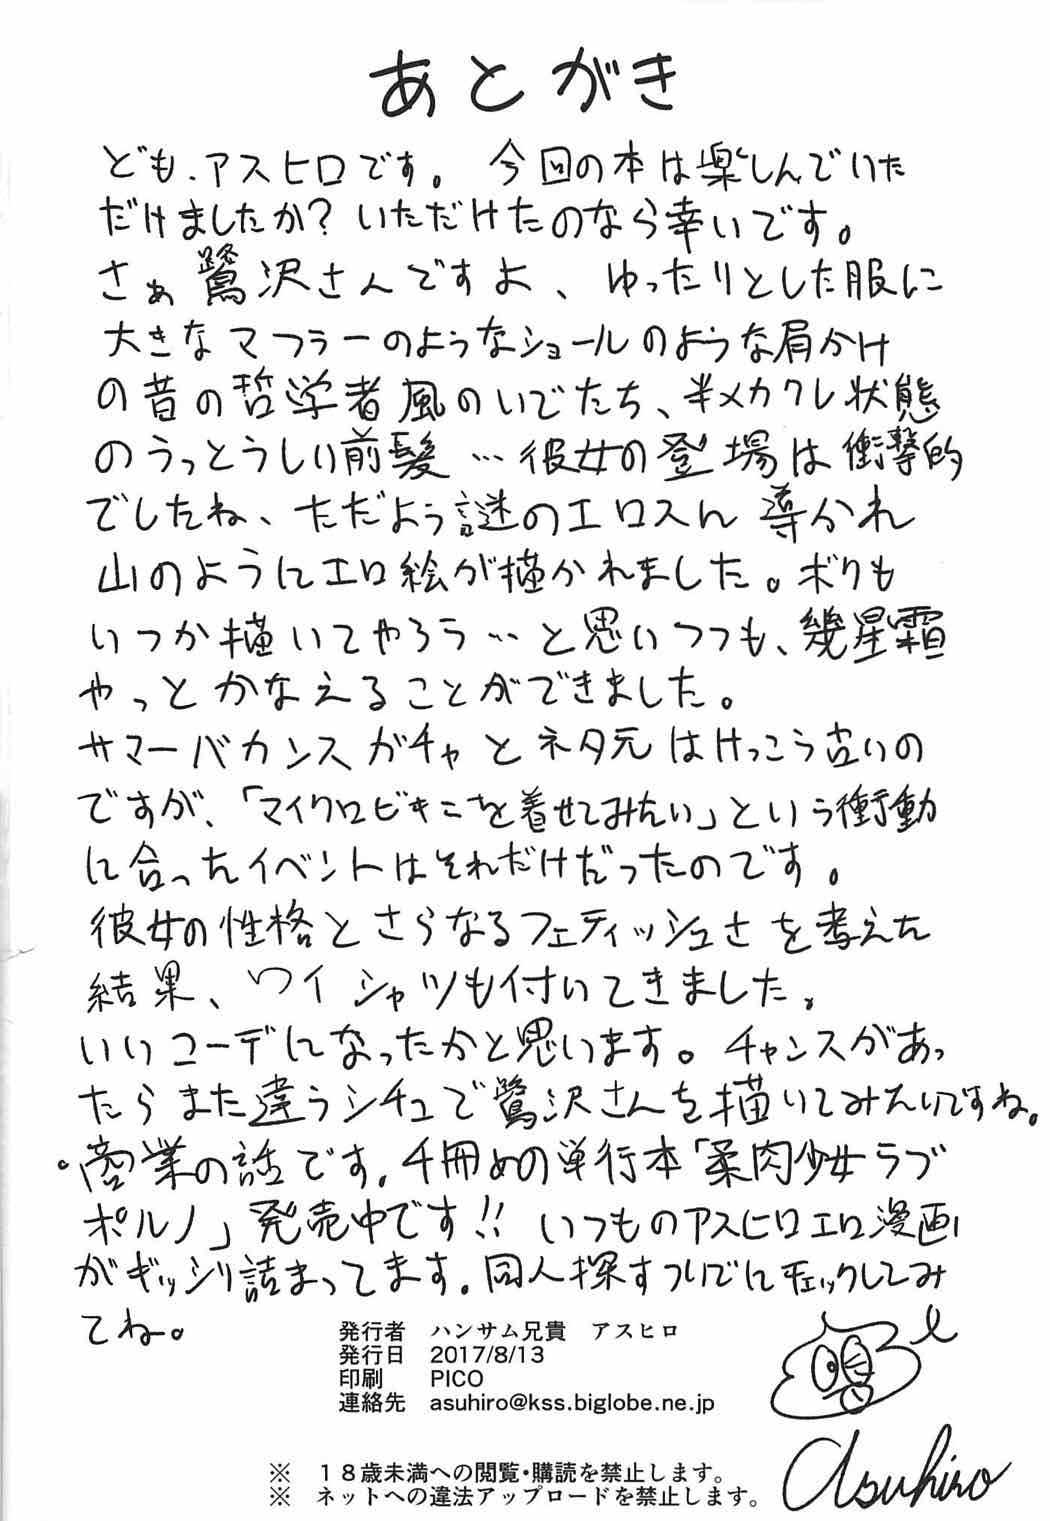 あとがき
ども、アスヒロです。今回の本は楽しんでいた
だけましたか？いただけたのなら幸いです。
さぁ鷺沢さんですよ、ゆったりとした服に
大きなマフラーのようなショールのような肩かけ
の昔の哲学者風のいでたち、半メカクレ状態
のうっとうしい前髪…彼女の登場は衝撃的
でしたね、ただよう謎のエロスに導かれ
山のようにエロ絵が描かれました。ボクも
いつか描いてやろう…と思いつつも、幾星霜
やっとかなえることができました。
サマーバカンスガチャとネタ元はけっこう古いの
ですが、「マイクロビキニを着せてみたい」という衝動
に合ったイベントはそれだけだったのです。
彼女の性格とさらなるフェティッシュさを考えた
結果、ワイシャツも付いてきました。
いいコーデになったかと思います。チャンスがあっ
たらまた違うシチュで鷺沢さんを描いてみたいですね。
・商業の話です。4冊めの単行本「柔肉少女ラブ
ポルノ」発売中です!! いつものアスヒロエロ漫画
がギッシリ詰まってます。同人探すついでにチェックしてみ
てね。
発行者　ハンサム兄貴　アスヒロ
発行日　2017/8/13
印刷　PICO
連絡先　asuhiro@kss.biglobe.ne.jp
Asuhiro
※　１８歳未満への閲覧・購読を禁止します。
※　ネットへの違法アップロードを禁止します。